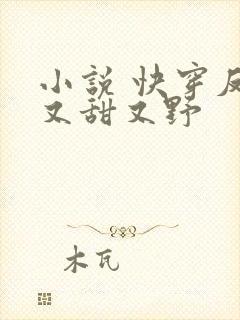 小説 快穿反
又甜又野
木瓦